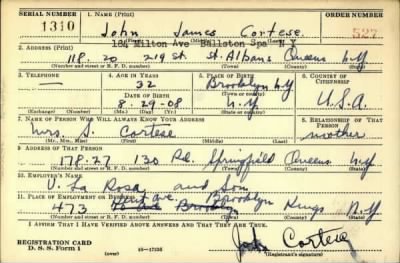 SERIAL NUMBER 1. NAME (Print) ORDER NUMBER
1310 John James Cortese 527
(First) (Middle) (Last)
184 Milton Ave Ballston Spa N Y
2. ADDRESS (Print)
118-20 219 St. St. Albans Queens N.Y
(Number and street or R. F. D. number) (Town) (County) (State)
3. TELEPHONE 4. AGE IN YEARS 5. PLACE OF BIRTH 6. COUNTRY OF CITIZENSHIP
— 32 Brooklyn N.Y
DATE OF BIRTH (Town or county)
8-29-08 N.Y U.S.A.
(Exchange) (Number) (Mo.) (Day) (Yr.) (State or country)
7. NAME OF PERSON WHO WILL ALWAYS KNOW YOUR ADDRESS 8. RELATIONSHIP OF THAT PERSON
Mrs. S. Cortese mother
(Mr., Mrs., Miss) (First) (Middle) (Last)
9. ADDRESS OF THAT PERSON
178-27 130 Rd. Springfield Queens N.Y
(Number and street or R. F. D. number) (Town) (County) (State)
10. EMPLOYER'S NAME
V. La Rosa and Son
11. PLACE OF EMPLOYMENT OR BUSINESS
Kent Ave. Brooklyn
473 Brooklyn Kings N.Y
(Number and street or R. F. D. number) (Town) (County) (State)
I AFFIRM THAT I HAVE VERIFIED ABOVE ANSWERS AND THAT THEY ARE TRUE.
REGISTRATION CARD
D. S. S. Form 1 16-17105 John Cortese
(Registrant's signature)